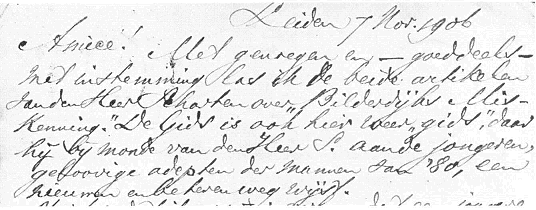 Leiden 7 Nov. 1906
Amice! Met genoegen en – goeddeels –
met instemming las ik de beide artikelen
van den Heer Scharten over „Bilderdijks Mis-
kenning.” De Gids is ook hier weer „gids”, daar
hij bij monde van den Heer S. aan de jongeren,
geloovige adepten der mannen van '80, een
nieuwen en beteren weg wijst.